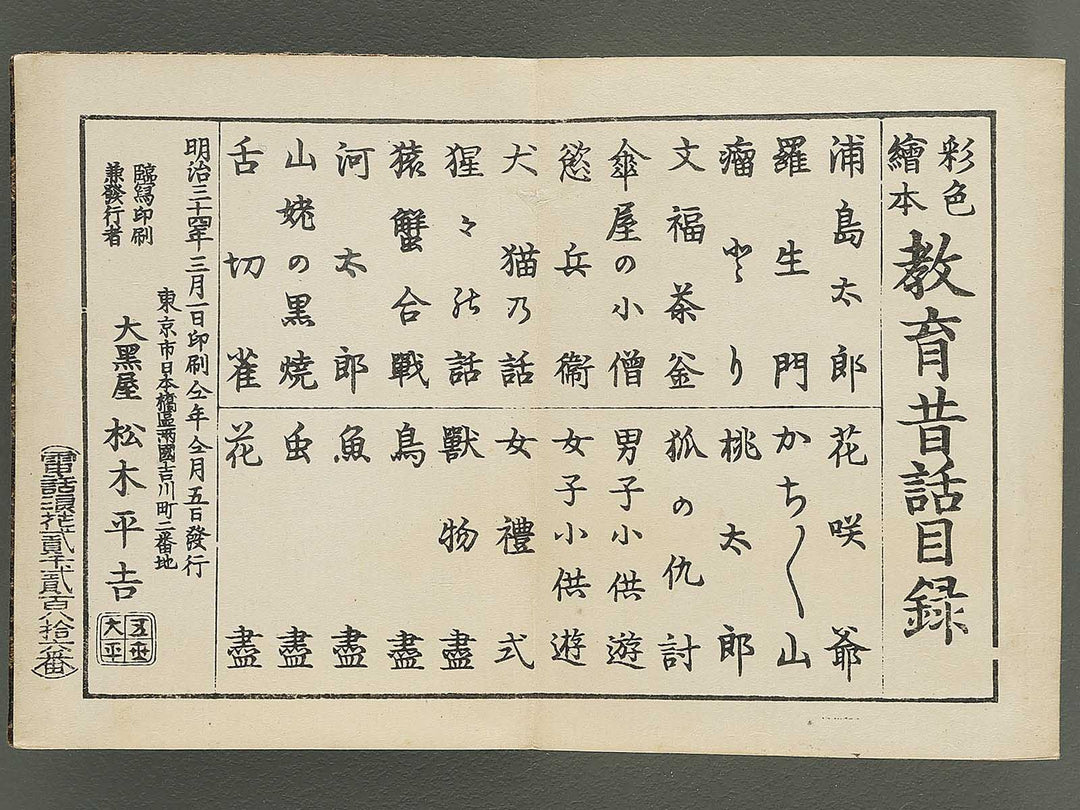 彩色
繪本
教育昔話目録
浦島太郎
羅生門
瘤とり
文福茶釜
傘屋の小僧
慾兵衞
犬猫乃話
猩々の話
猿蟹合戰
河太郎
山姥の黒焼
舌切雀
花咲爺
かち〳〵山
桃太郎
狐の仇討
男子小供遊
女子小供遊
女禮式
獸物盡
鳥盡
魚盡
虫盡
花盡
明治三十四年三月一日印刷仝年仝月五日發行
東京市日本橋區兩國吉川町二番地
臨寫印刷
兼發行者
大黑屋 松木平吉
大平
電話浪花貳千貳百八拾六番